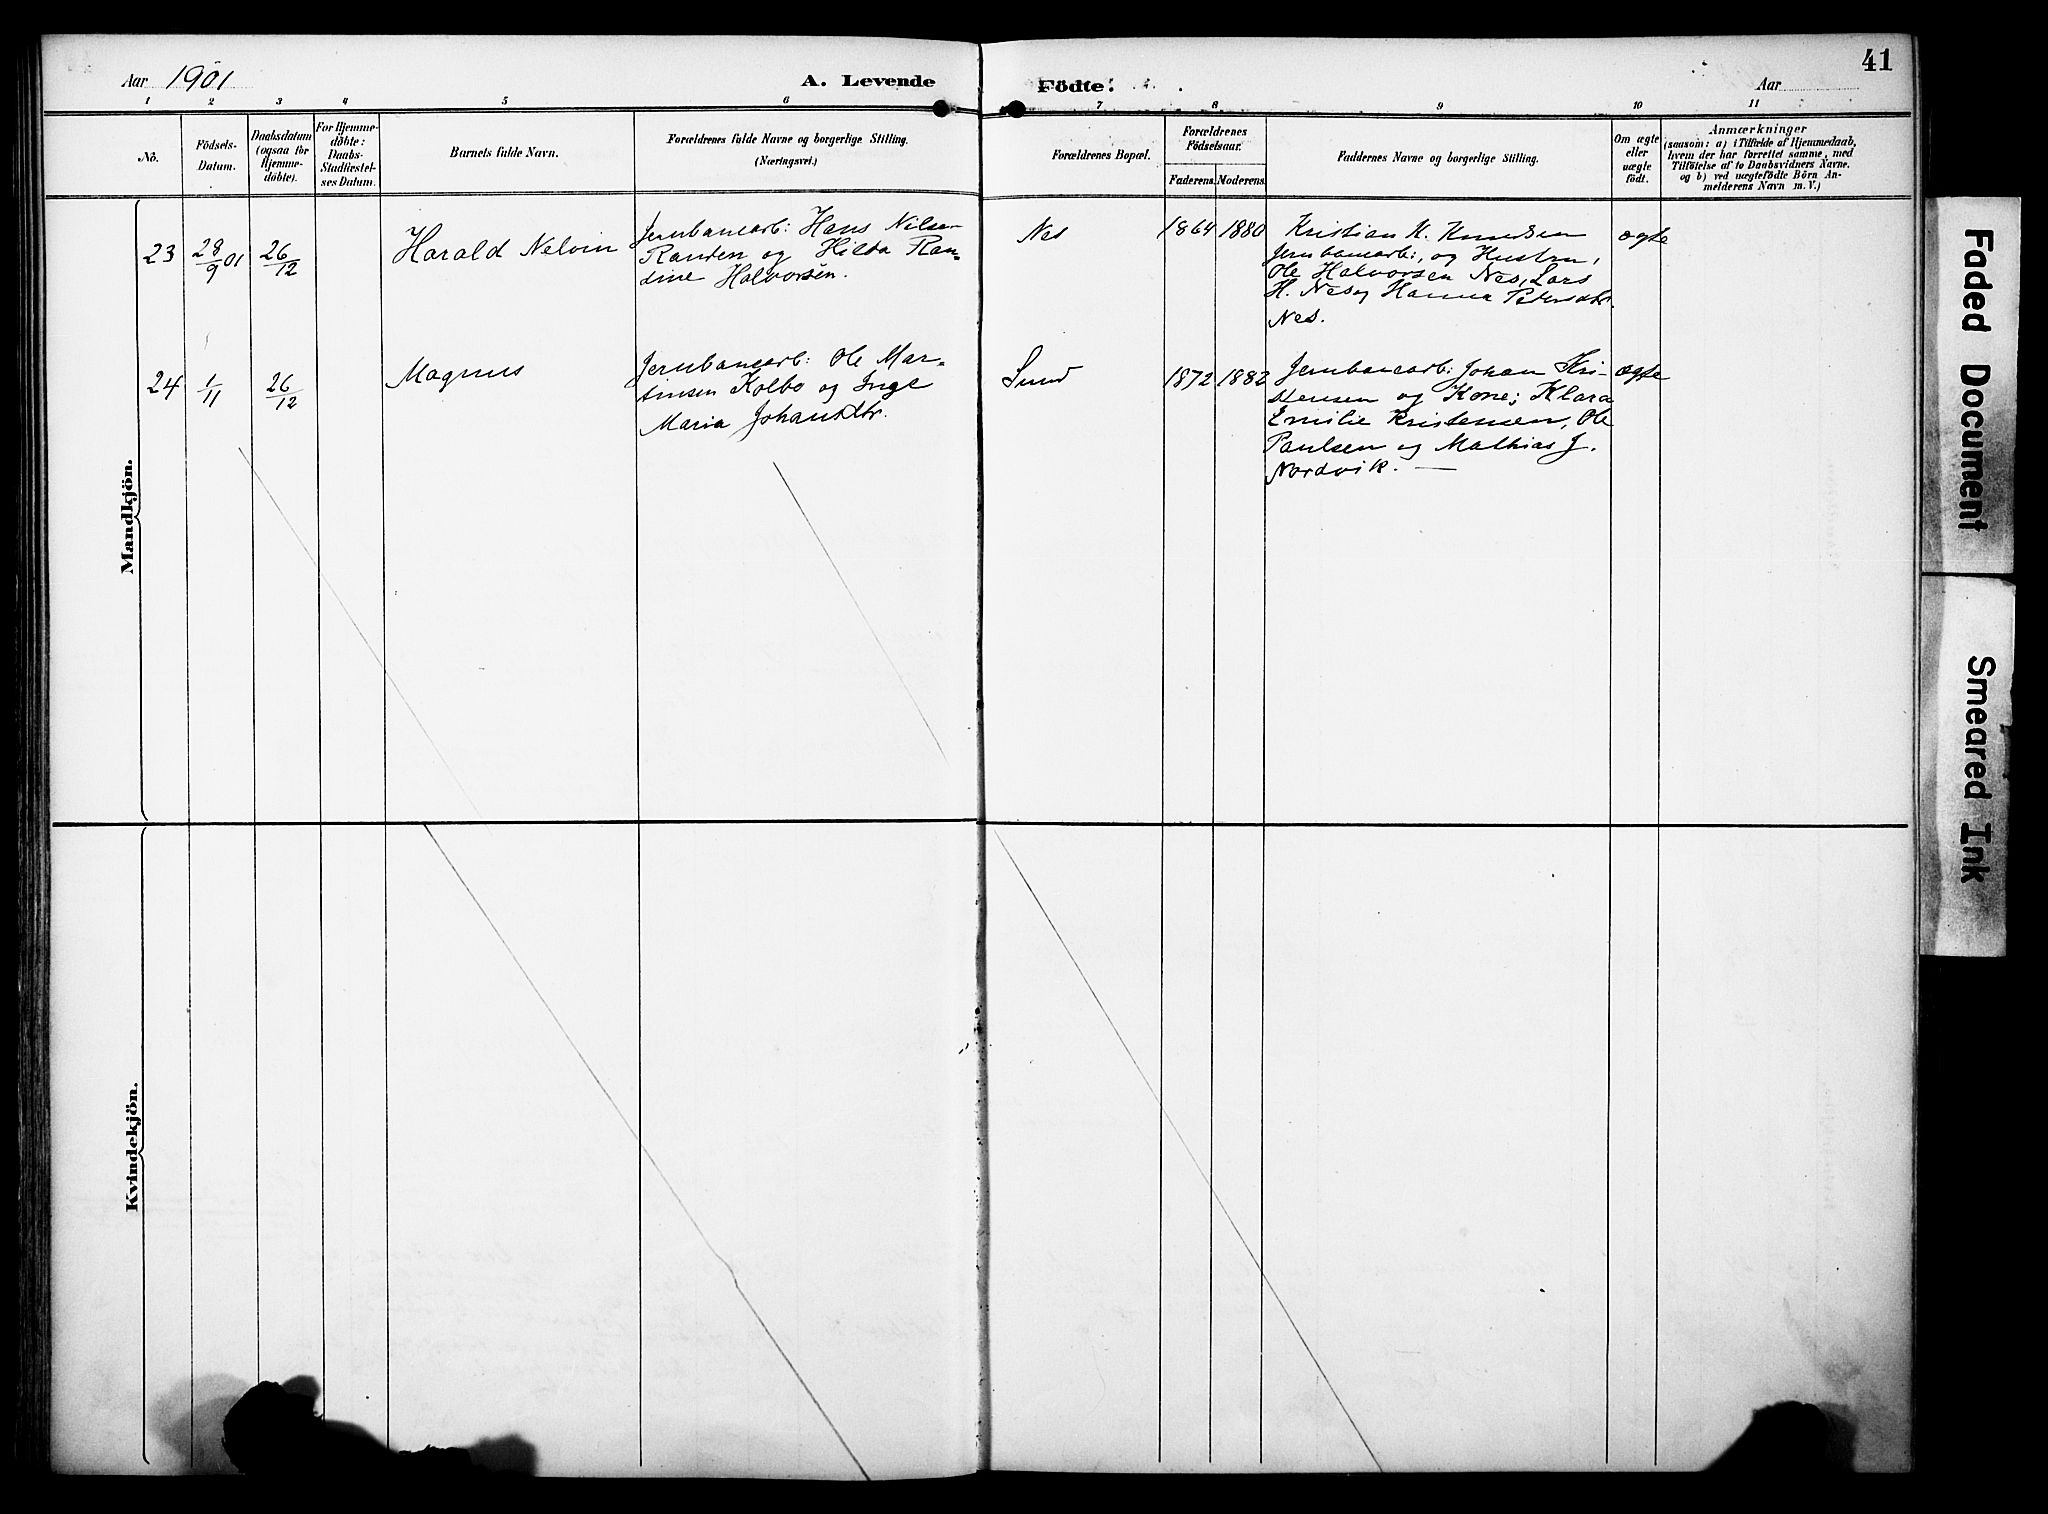 41
Aar 1901
A. Levende
Födte.
Aar
1 2 3 4 5 6 7 8 9 10 11
No.
Födsels-
Datum.
Daabsdatum
(ogsaa for
Hjemme-
döbte).
For Hjemme-
döbte:
Daabs-
Stadfæstel-
ses Datum.
Barnets fulde Navn.
Forældrenes fulde Navne og borgerlige Stilling.
(Næringsvei.)
Forældrenes Bopæl.
Forældrenes
Födselsaar.
Faderens. Moderens.
Faddernes Navne og borgerlige Stilling.
Om ægte
eller
uægte
födt.
Anmærkninger
(saasom: a) i Tilfælde af Hjemmedaab,
hvem der har forrettet samme, med
Tilföielse af to Daabsvidners Navne,
og b) ved uægtefödte Börn An-
melderens Navn m. V.)
Mandkjön.
23
28/9 01
26/12
Harald Nelvin
Jernbanearb: Hans Nilsen
Randen og Hilda Ran-
dine Halvorsen.
Nes
1864 1880
Kristian K. Knudsen
Jernbanearb:, og Hustru,
Ole Halvorsen Nes, Lars
H. Nes og Hanna Petersdtr.
Nes.
ægte
24
1/11
26/12
Magnus
Jernbanearb: Ole Mar-
tinsen Kolbo og Inge
Maria Johansdtr.
Sund
1872 1882
Jernbanearb: Johan Kri-
stensen og Kone; Klara
Emilie Kristensen, Ole
Paulsen og Mathias J.
Nordvik. —
ægte
Kvindekjön.
Faded Document
Smeared Ink